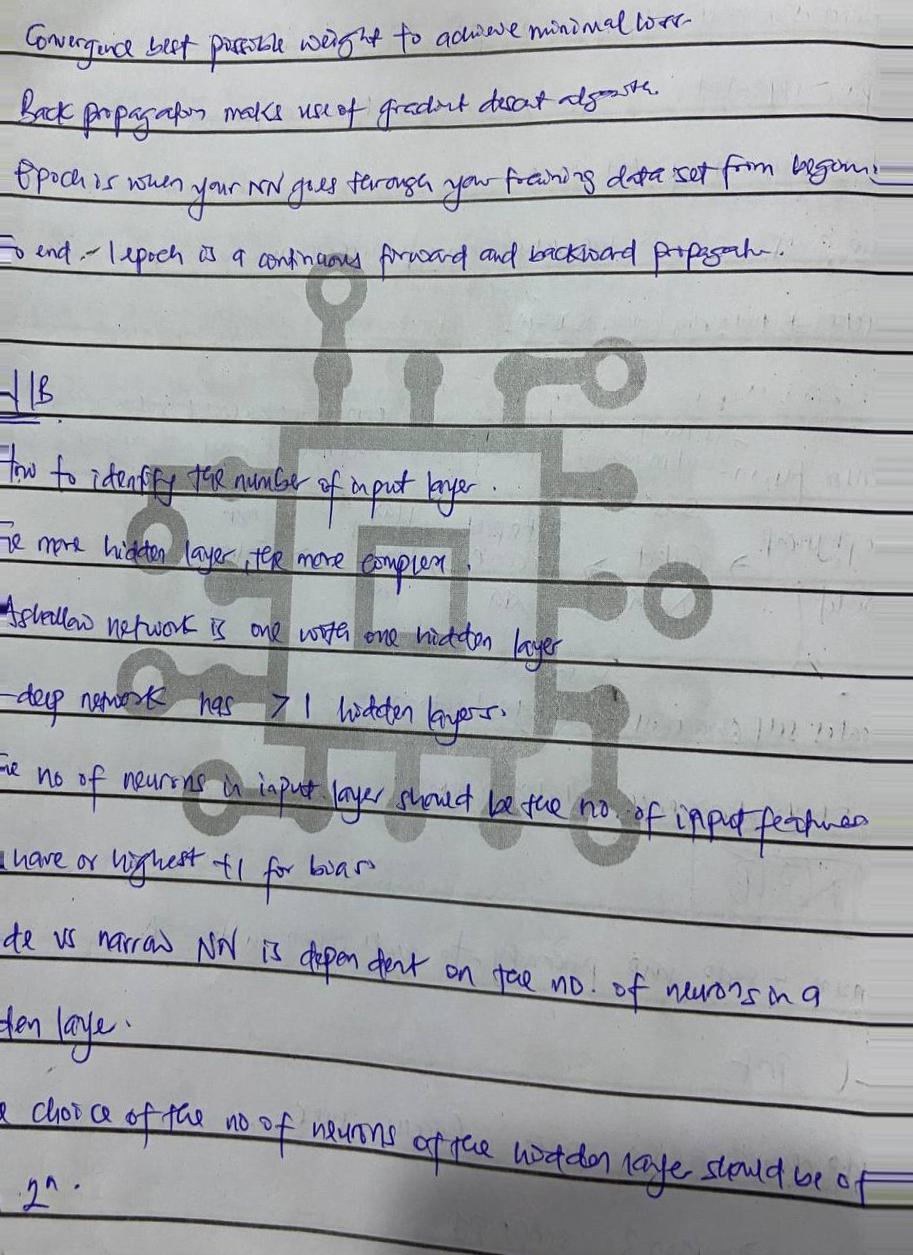 Convergence best possible weight to achieve minimal loss
Back propagation makes use of gradient descent
Epoch is when your NN goes through your training data set from
To end - 1 epoch is a continuous forward and backward
11B
How to identify the number of input layer.
The more hidden layer, the more complex.
A shallow network is one with one hidden layer
deep network has > 1 hidden layers.
The no of neurons in input layer should be the no. of input features
have or highest +1 for bias
de vs narrow NN is dependent on the no. of neurons in a
den laye.
choice of the no of neurons of the hidden laye should be of
2ⁿ.